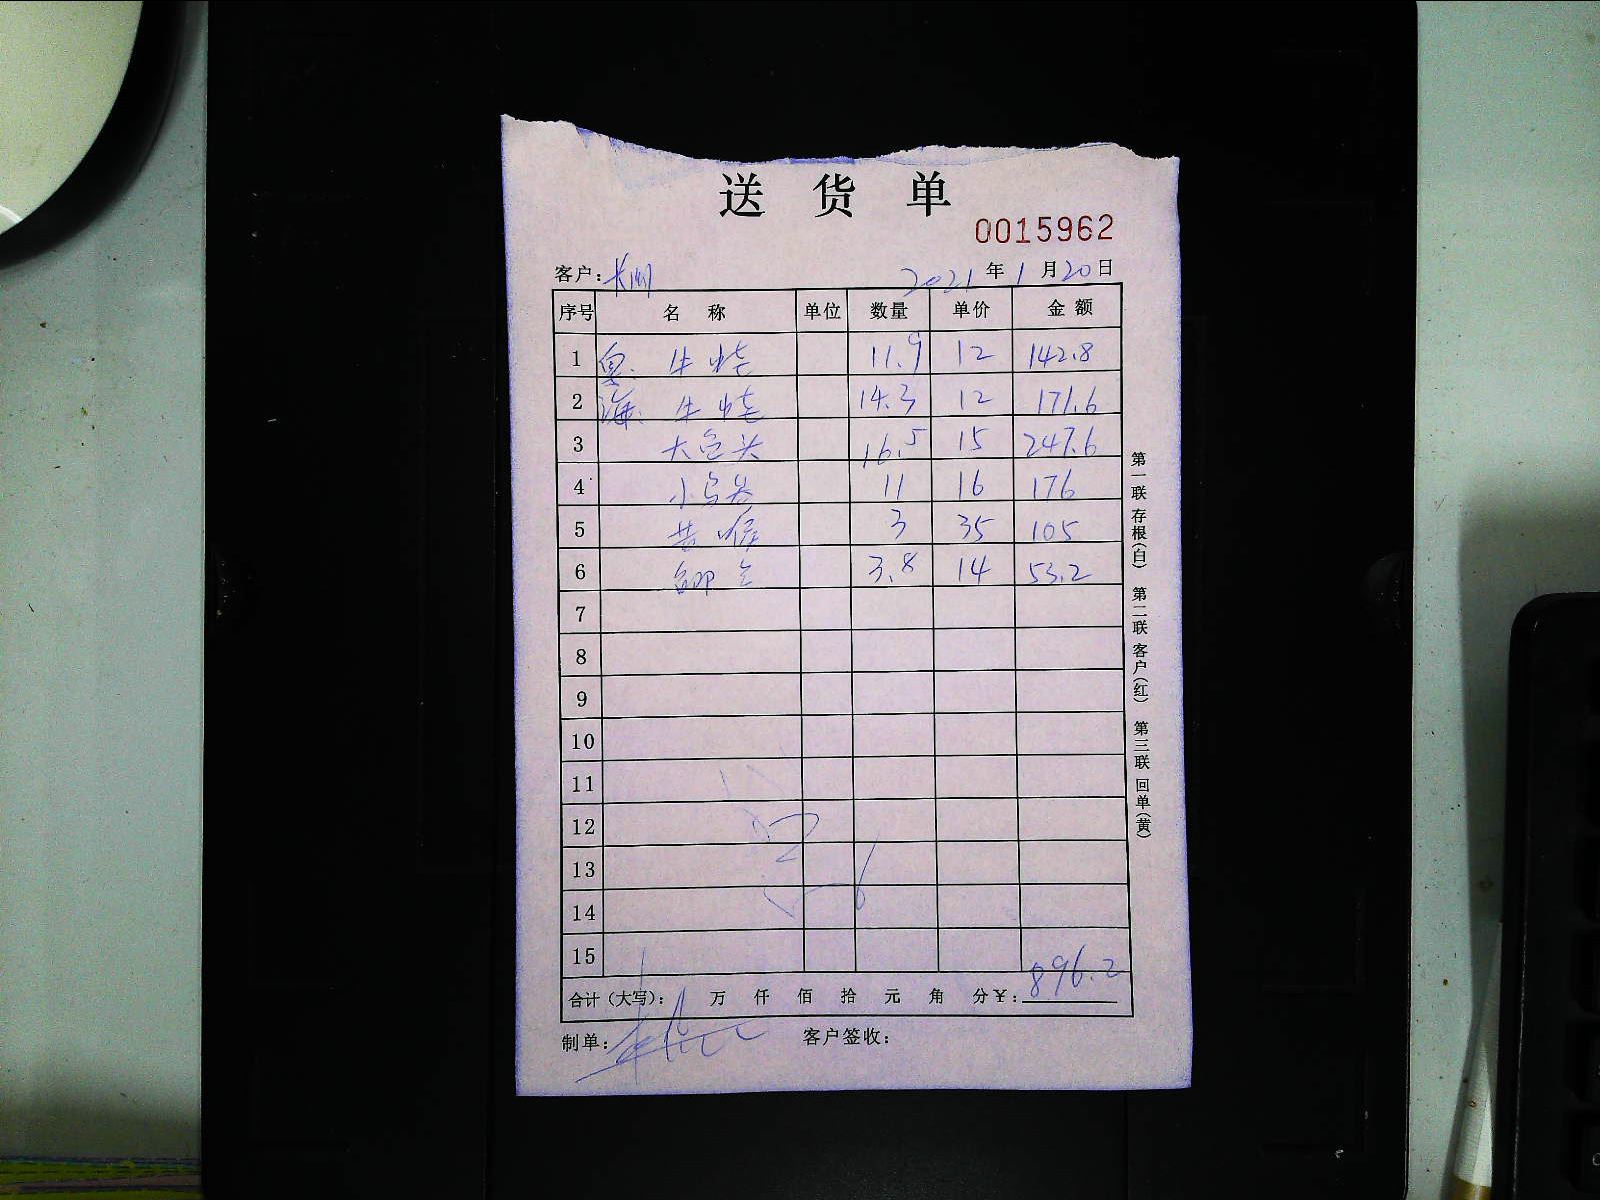 送 货 单
0015962
客户: 长州 2021 年 1 月 20 日
序号 名 称 单位 数量 单价 金额
1 牛蛙 11.9 12 142.8
2 海: 牛蛙 14.3 12 171.6
3 大鱼头 16.5 15 247.6
4 小 11 16 176
5 黄喉 3 35 105
6 3.8 14 53.2
7
8
9
10
11
12
13
14
15
合计（大写）： 万 仟 佰 拾 元 角 分￥：896.2
制单： 客户签收：
第一联 存根（白） 第二联 客户（红） 第三联 回单（黄）